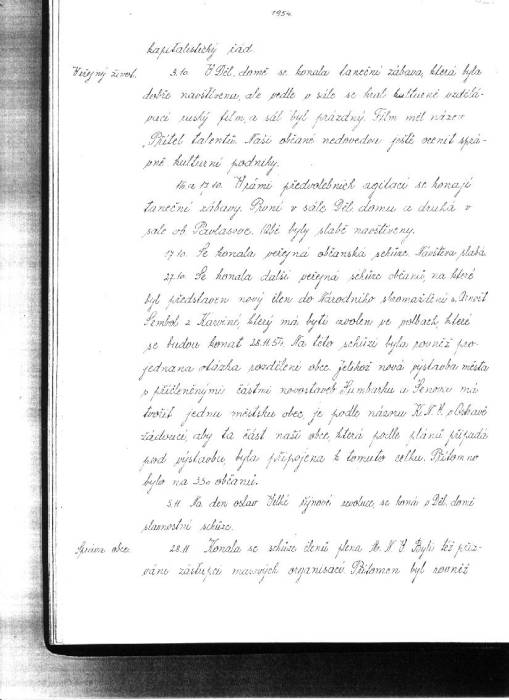 1954.
kapitalistický řád.
Veřejný život. 3.10. V Děl. domě se konala taneční zábava, která byla
dobře navštívena, ale vedle v sále se hrál kulturně vzdělá-
vací ruský film, a sál byl prázdný. Film měl název
„Přítel talentů. Naši občané nedovedou ještě ocenit sprá-
vně kulturní podniky.
16. a 17.10. V rámci předvolebních agitací se konají
taneční zábavy. První v sále Děl. domu a druhá v
sále ob. Pavlasové. Obě byly slabě navštíveny.
17.10. Se konala veřejná občanská schůze. Návštěva slabá.
27.10. Se konala další veřejná schůze občanů, na které
byl představen nový člen do Národního shromáždění s.
Sembol z Karviné, který má býti zvolen ve volbách, které
se budou konat 28.11.54. Na této schůzi byla rovněž pro-
jednána otázka rozdělení obce. Jelikož nová výstavba města
s přičleněnými částmi novostaveb Šumbarku a Šenova má
tvořit jednu městskou obec, je podle názoru K.N.V. v Ostravě
žádoucí, aby ta část naší obce, která podle plánů připadá
pod výstavbu, byla připojena k tomuto celku. Přítomno
bylo na 350 občanů.
5.11. Na den oslav Velké říjnové revoluce, se koná v Děl. domě
slavnostní schůze.
Správa obce. 28.11. Konala se schůze členů plena M.N.V. Byli též přiz-
váni zástupci masových organisací. Přítomen byl rovněž